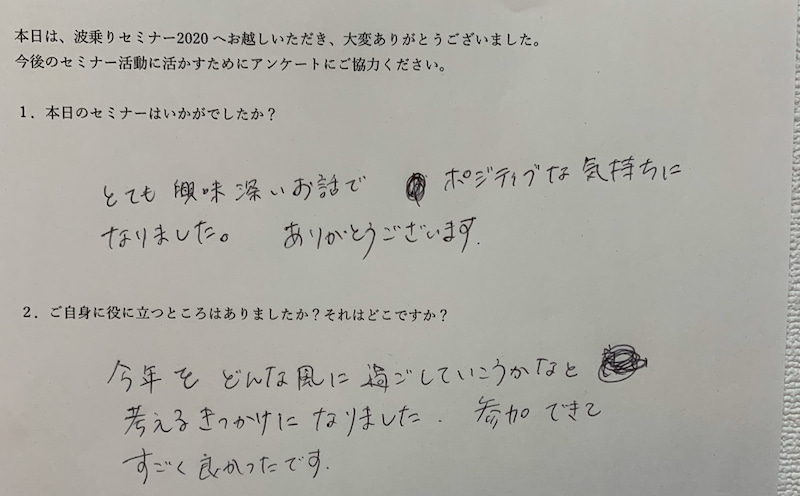 本日は、波乗りセミナー2020 へお越しいただき、大変ありがとうございました。
今後のセミナー活動に活かすためにアンケートにご協力ください。
１．本日のセミナーはいかがでしたか？
とても興味深いお話で ポジティブな気持ちに
なりました。 ありがとうございます.
２．ご自身に役に立つところはありましたか？それはどこですか？
今年をどんな風に過ごしていこうかなと
考えるきっかけになりました. 参加できて
すごく良かったです.